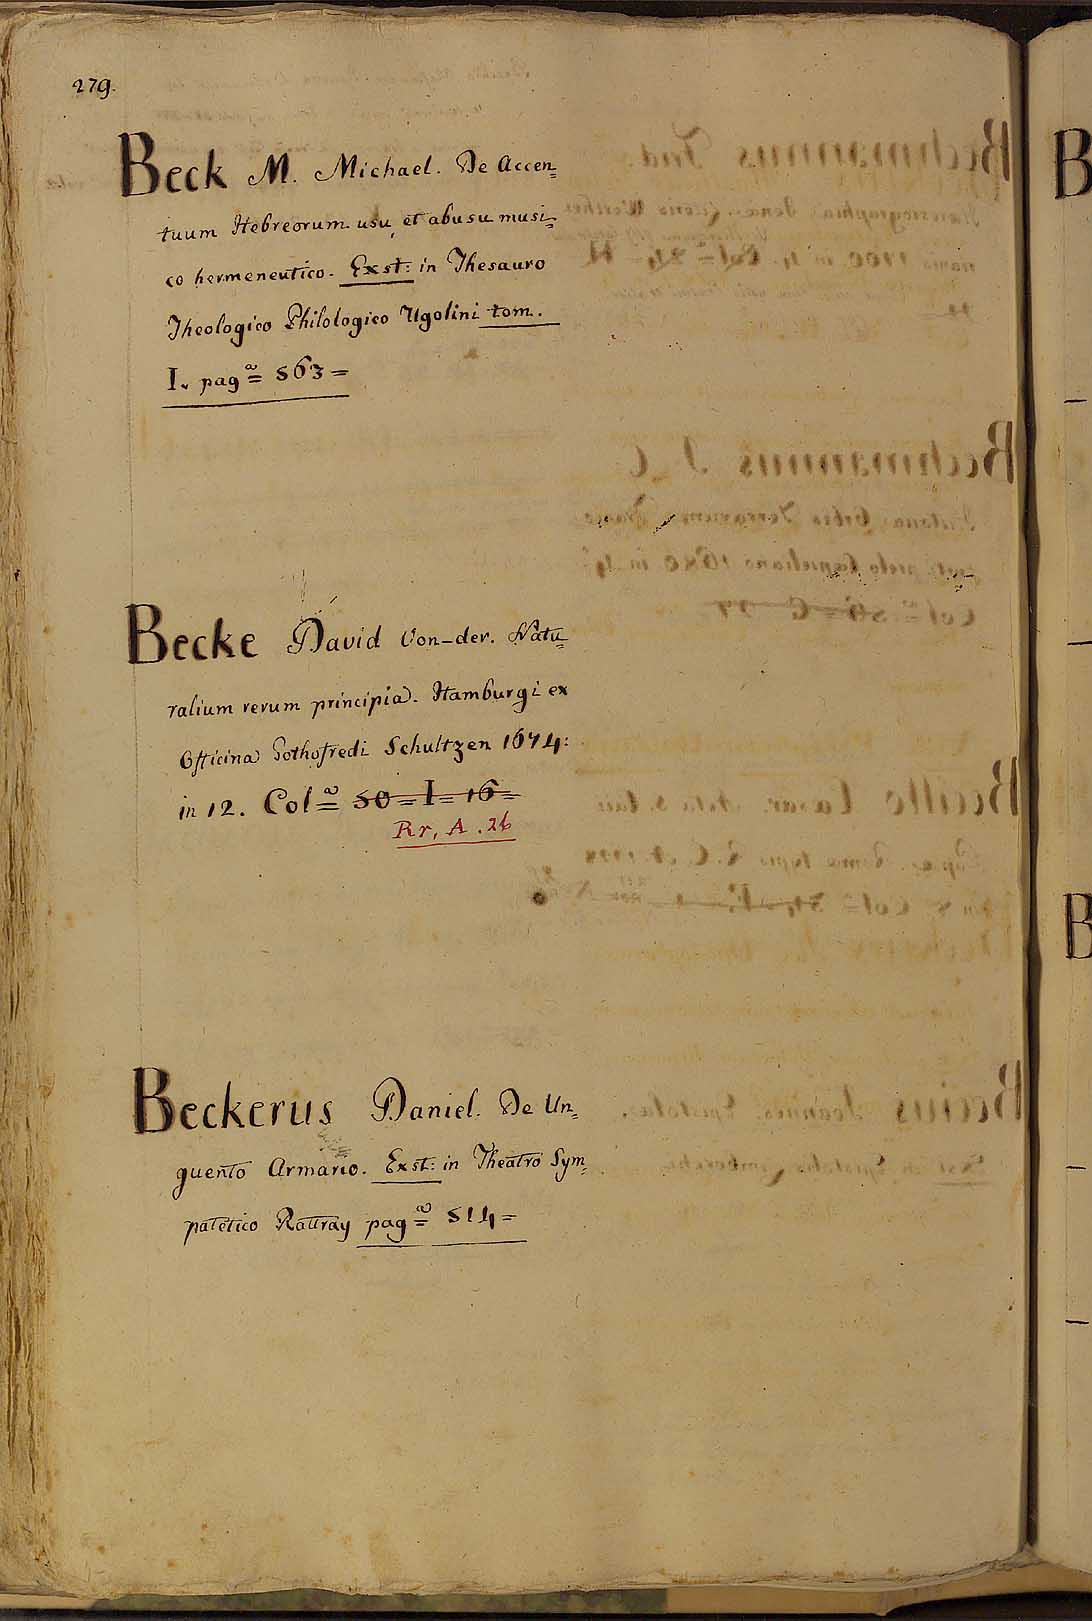 279.
Beck M. Michael. De Accen=
tuum Hebreorum usu, et abusu musi=
co hermeneutico. Exst: in Thesauro
Theologico Philologico Ugolini tom.
I. pagª= 563=
Becke David Von-der. Natu=
ralium rerum principia. Hamburgi ex
Officina Gothofredi Schultzen 1674:
in 12. Colª= 50=I=16=
Rr, A. 26
Beckerus Daniel. De Un=
guento Armario. Exst: in Theatro Sym=
patetico Rattray pagª= 514=
B
B